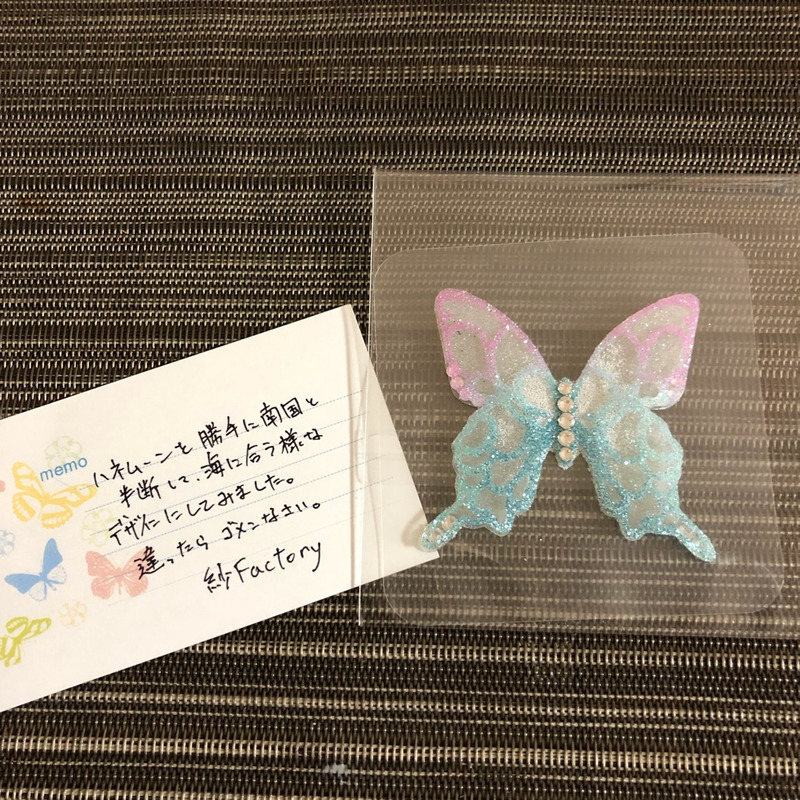 memo
ハネムーンを 勝手に南国と
判断して、海に合う様な
デザインにしてみました。
違ったら ゴメンなさい。
紗Factory